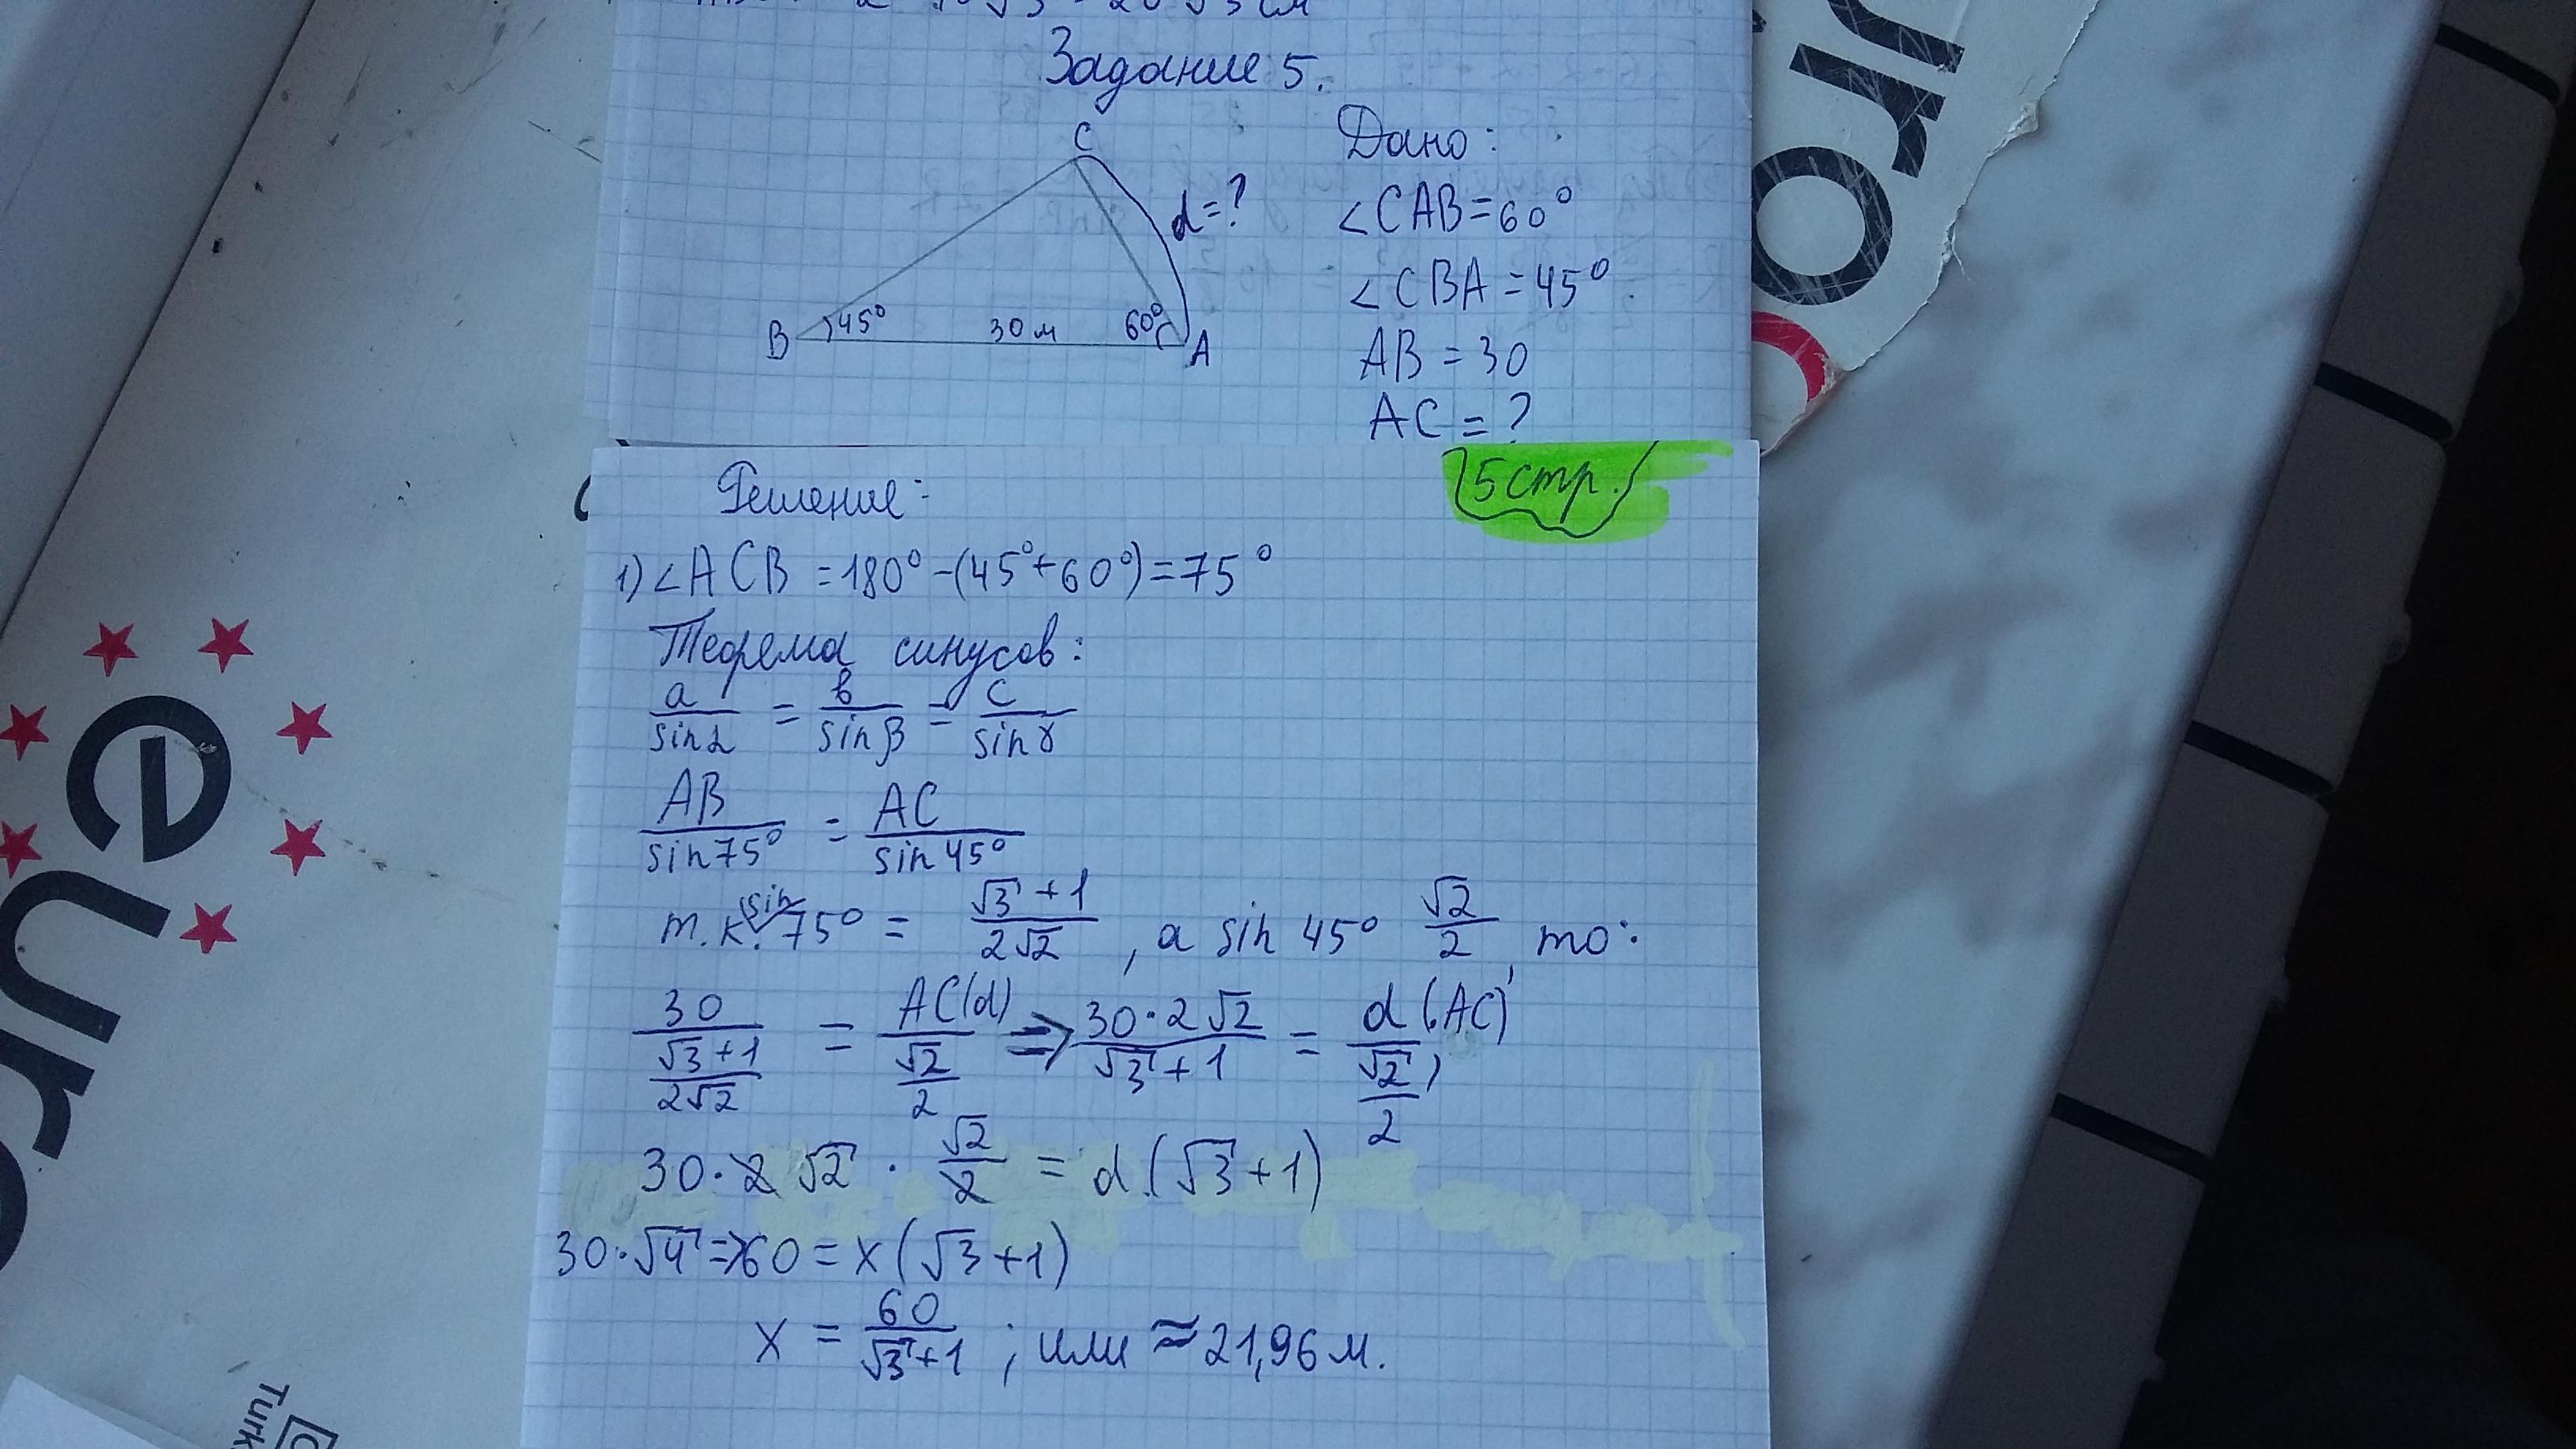 Задание 5.
C
d=?
B 45° 30 м 60° A
Дано:
∠CAB=60°
∠CBA=45°
AB=30
AC=?
5 стр.
Решение:
1) ∠ACB=180°-(45°+60°)=75°
Теорема синусов:
a/sinα = b/sinβ = c/sinγ
AB/sin75° = AC/sin45°
т.к. sin 75° = (√3+1)/(2√2), а sin 45° √2/2, то:
30/((√3+1)/(2√2)) = AC(d)/(√2/2) => 30·2√2/(√3+1) = d(AC)/(√2/2),
30·2√2·√2/2 = d.(√3+1)
30·√4=>60=x(√3+1)
x = 60/(√3+1); или ≈21,96 м.
euro
euro
uro
Turk